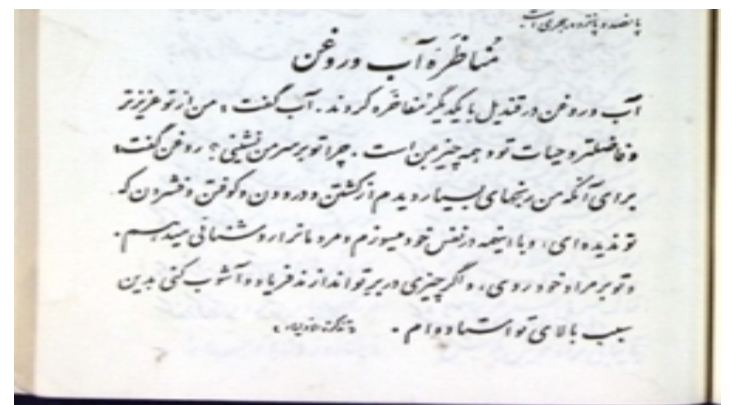 پانصد و پانزده هجری است.
مُناظَرَهٔ آب و روغن
آب و روغن در قندیل با یکدیگر مُفاخَره کردند. آب گفت «من از تو عزیزتر
و فاضلتر و حیات تو و همه چیز من است. چرا تو بر سر من نشینی؟ روغن گفت:
برای آنکه من رنجهای بسیار دیدم از کشتن و درودن و کوفتن و فشردن که
تو ندیده‌ای، و با اینهمه در نفس خود میسوزم و مردمانرا روشنائی میدهم.
و تو بر مراد خود روی، و اگر چیزی در بر تو اندازند فریاد و آشوب کنی بدین
سبب بالای تو استاده‌ام. «تذکرة الاولیاء»